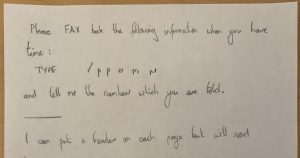 Please FAX back the following information when you have
time:
TYPE / P P O M N
and tell me the number which you are told.
I can put a header on each page but will need